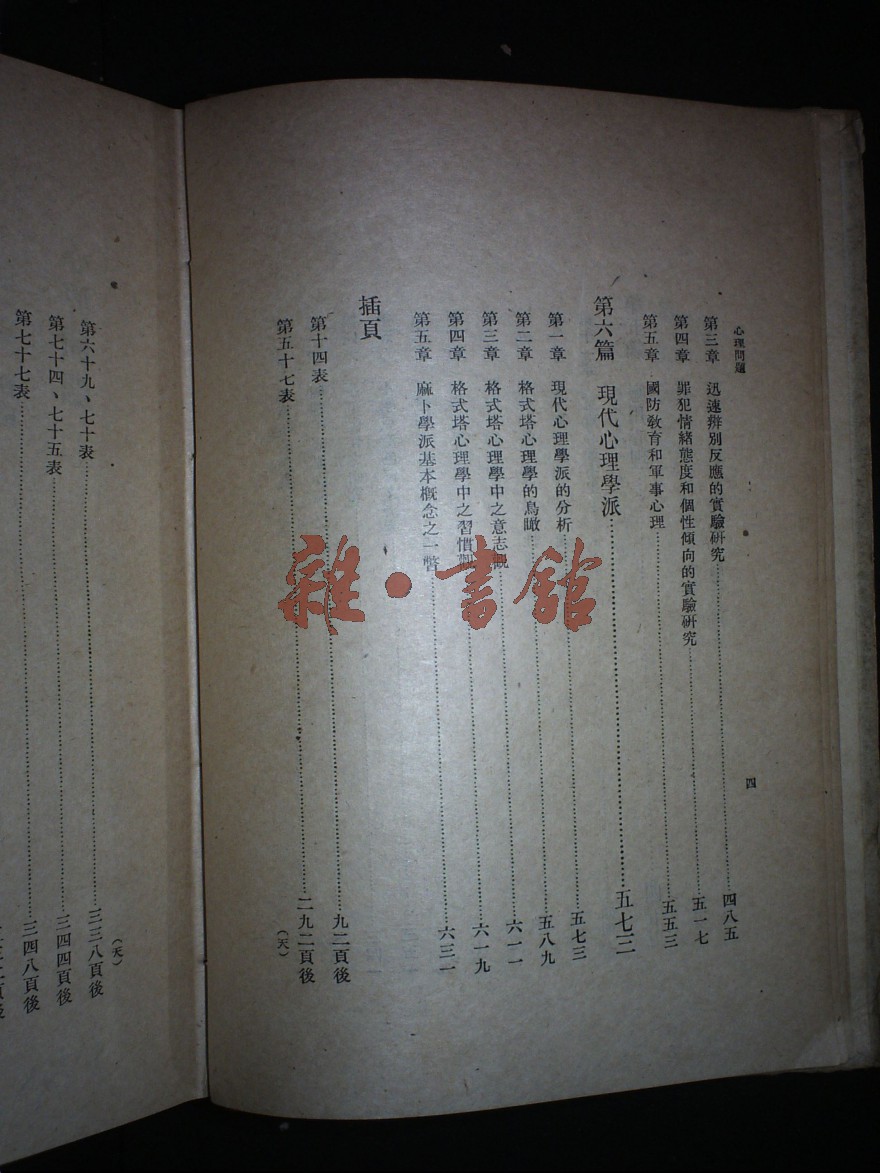 心理問題
四
第三章 迅速辨別反應的實驗研究……四八五
第四章 罪犯情緒態度和個性傾向的實驗研究……五一七
第五章 國防教育和軍事心理……五五三
第六篇 現代心理學派……五七三
第一章 現代心理學派的分析……五七三
第二章 格式塔心理學的鳥瞰……五八九
第三章 格式塔心理學中之意志觀……六一一
第四章 格式塔心理學中之習慣觀……六一九
第五章 麻卜學派基本概念之一瞥……六三一
插頁
第十四表……九二頁後
第五十七表……二九二頁後
(天)
第六十九、七十表……三三八頁後
第七十四、七十五表……三四四頁後
第七十七表……三四八頁後
(天)
雜·書館